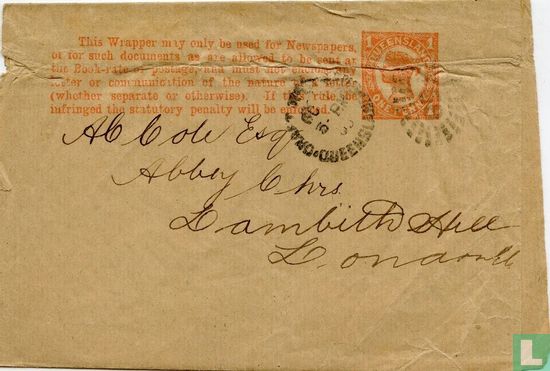 This Wrapper may only be used for Newspapers,
or for such documents as are allowed to be sent at
the Book-rate of postage, and must not enclose any
letter or communication of the nature of a letter
(whether separate or otherwise). If this rule be
infringed the statutory penalty will be enforced.
QUEENSLAND
1 1
ONE PENNY
QUEENSLAND
A C Cole Esq
Abbey Chrs
Lambith Hill
London
L